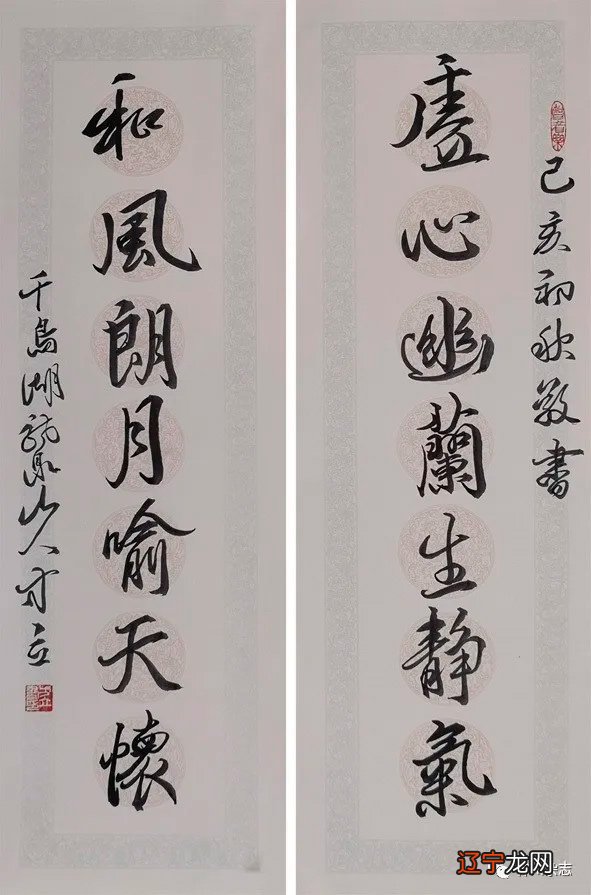 己亥初秋敬書
虚心幽蘭生静氣
和風朗月喻天懷
千島湖山人立
辽宁龙网
杂志